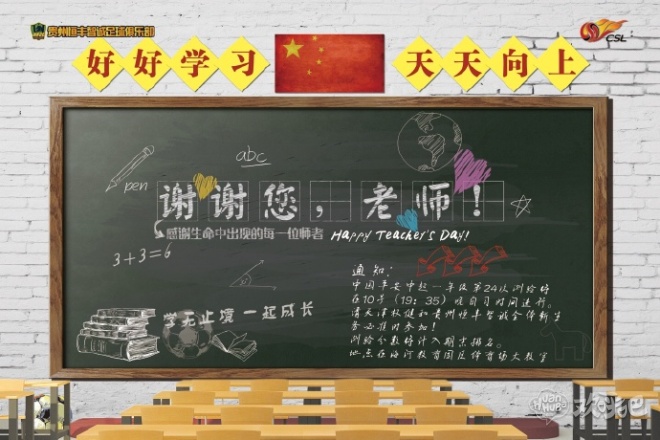 贵州恒丰智诚足球俱乐部
CSL
好好学习
天天向上
abc
pen
谢谢您,老师!
感谢生命中出现的每一位师者 Happy Teacher's Day!
3+3=6
学无止境 一起成长
通知:
中国平安中超一年级第24次测验将
在10号(19:35)晚自习时间进行。
请天津权健和贵州恒丰智诚全体新生
务必准时参加!
测验分数将计入期末排名。
地点在海河教育园区体育场大教室